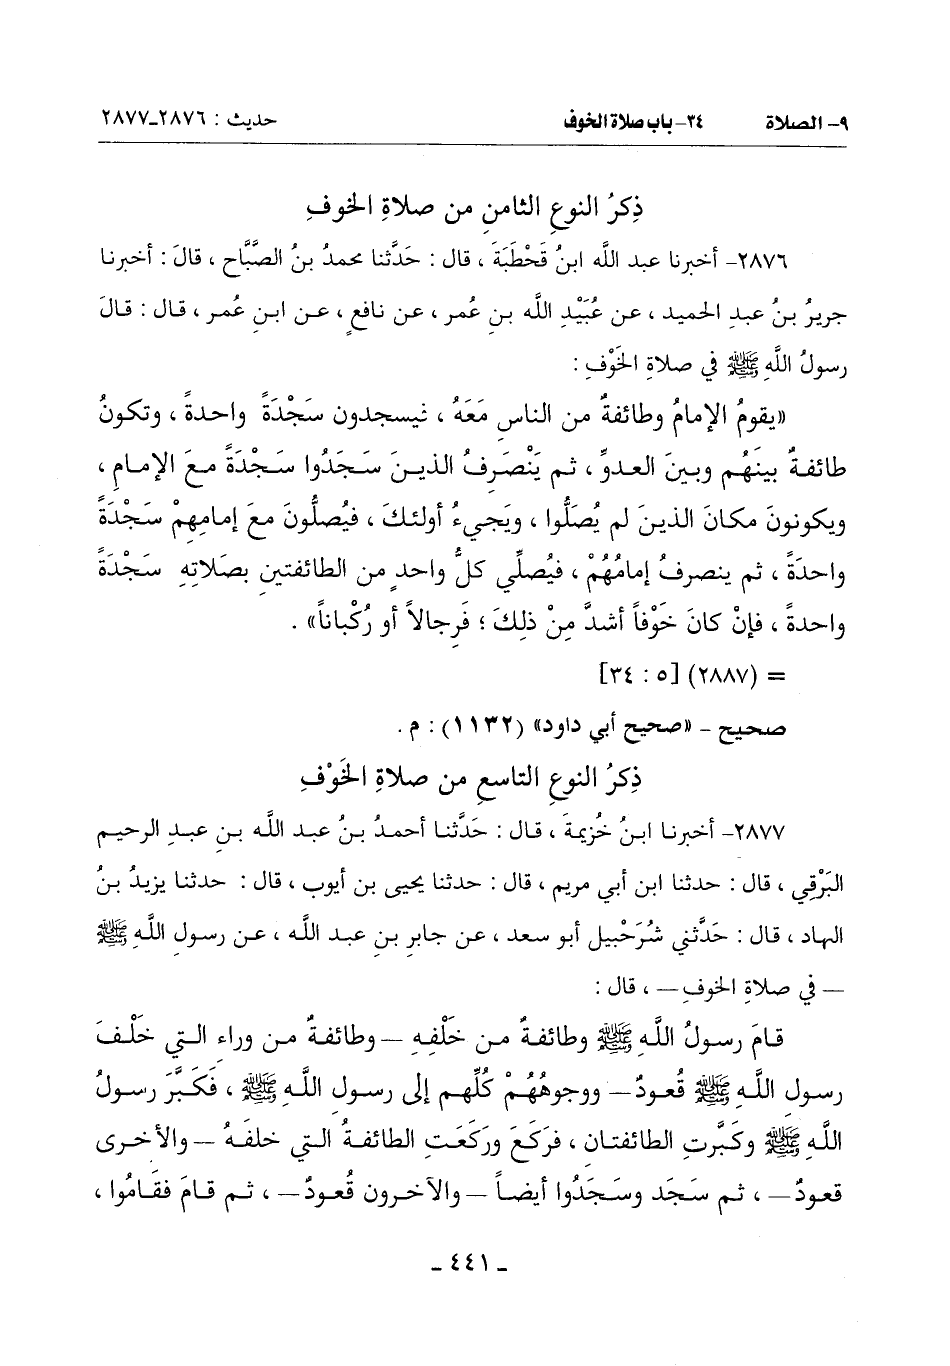 ٩- الصلاة ٣٤- باب صلاة الخوف حديث : ٢٨٧٦-٢٨٧٧
ذِكرُ النوعِ الثامنِ من صلاةِ الخوفِ
٢٨٧٦- أخبرنا عبد الله ابنُ قَحْطَبَةَ ، قال : حَدَّثنا محمدُ بنُ الصَّبَّاح ، قالَ : أخبرنا
جريرُ بنُ عبدِ الحميد ، عن عُبَيْدِ اللَّه بنِ عُمر ، عن نافعٍ ، عن ابنِ عُمر ، قال : قالَ
رسولُ اللَّهِ ﷺ في صلاةِ الخَوْفِ :
«يقومُ الإمامُ وطائفةٌ من الناسِ مَعَهُ ، فيسجدون سَجْدَةً واحدةً ، وتكونُ
طائفةٌ بينَهُم وبينَ العدوِّ ، ثم يَنْصَرِفُ الذينَ سَجَدُوا سَجْدَةً معَ الإمامِ ،
ويكونونَ مكانَ الذينَ لم يُصَلُّوا ، ويَجيءُ أولئكَ ، فيُصلُّونَ معَ إمامِهِمْ سَجْدَةً
واحدَةً ، ثم ينصرفُ إمامُهُمْ ، فيُصلِّي كلُّ واحدٍ من الطائفتينِ بصَلاتِهِ سَجْدَةً
واحدةً ، فإنْ كانَ خَوْفاً أشدَّ مِنْ ذلِكَ ؛ فَرِجالاً أو رُكْباناً» .
= (٢٨٨٧) [٥ : ٣٤]
صحيح - «صحيح أبي داود» (١١٣٢) : م .
ذِكرُ النوعِ التاسعِ من صلاةِ الخَوْفِ
٢٨٧٧- أخبرنا ابنُ خُزيمةَ ، قال : حَدَّثنا أحمدُ بنُ عبد اللَّه بنِ عبدِ الرحيم
البَرْقِي ، قال : حدثنا ابن أبي مريم ، قال : حدثنا يحيى بن أيوب ، قال : حدثنا يزيدُ بنُ
الهاد ، قال : حَدَّثني شُرَحْبيل أبو سعد ، عن جابرِ بنِ عبد اللَّه ، عن رسول اللَّهِ ﷺ
— في صلاةِ الخوفِ — ، قال :
قامَ رسولُ اللَّهِ ﷺ وطائفةٌ من خَلْفِهِ — وطائفةٌ من وراء التي خَلْفَ
رسولِ اللَّهِ ﷺ قُعودٌ — ووجوهُهُمْ كُلِّهم إلى رسولِ اللَّهِ ﷺ ، فَكَبَّرَ رسولُ
اللَّهِ ﷺ وكبَّرتِ الطائفتان ، فرَكَعَ ورَكَعَتِ الطائفةُ التي خلفَهُ — والأخرى
قعودٌ — ، ثم سَجَد وسَجَدُوا أيضاً — والآخرون قُعودٌ — ، ثم قامَ فقَامُوا ،
- ٤٤١ -